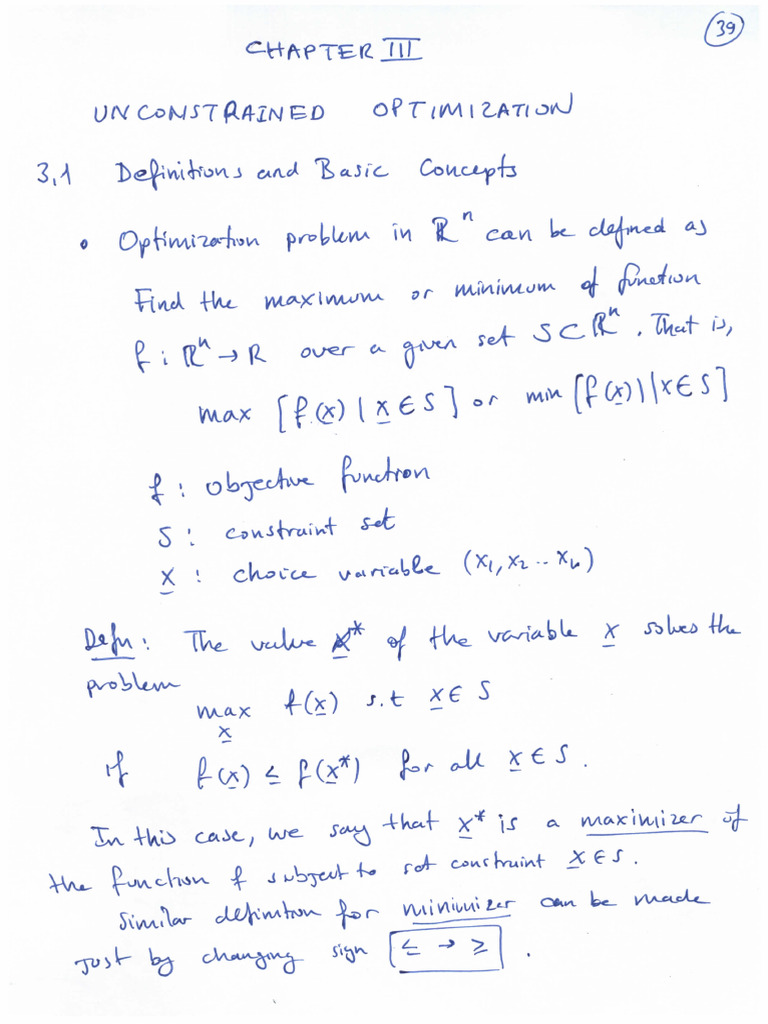 39
CHAPTER III
UNCONSTRAINED OPTIMIZATION
3.1 Definitions and Basic Concepts
• Optimization problem in ℝⁿ can be defined as
Find the maximum or minimum of function
f : ℝⁿ → R over a given set S ⊂ ℝⁿ. That is,
max [f(x) | x ∈ S] or min [f(x) | | x ∈ S]
f : objective function
S : constraint set
x : choice variable (x₁, x₂ .. xₙ)
Defn: The value x* of the variable x solves the
problem
max f(x) s.t x ∈ S
x
if f(x) ≤ f(x*) for all x ∈ S.
In this case, we say that x* is a maximizer of
the function f subject to set constraint x ∈ S.
Similar definition for minimizer can be made
Just by changing sign ≤ → ≥ .